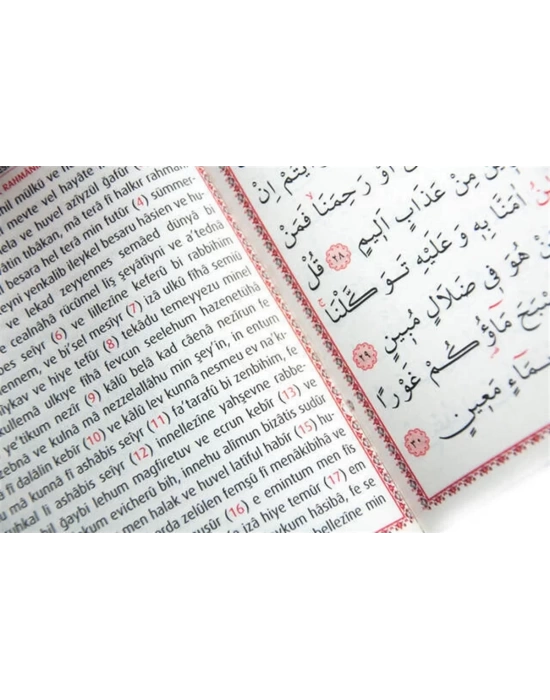 RAHMAN
mülkü ve
meyte vel hayâte
ve huvel azîyzül gafûr
tıbâkan, mâ terâ fî halkır rahmân
besara hel terâ min futûr (4) sümmer-
yenkalib ileykel besaru hâsien ve hu-
ve lekad zeyyennes semâed dünyâ bi
cealnâhâ rücûmel liş şeyâtîyni ve a'tednâ
bes seîyr (6) ve lillezîne keferû bi rabbihim
ennem, ve bi'sel mesîyr (7) izâ ülkû fîhâ semiû
ve hiye tefûr (8) tekâdu temeyyezu minel
küllemâ ulkıye fîhâ fevcun seelehum hazenetühâ
e'tikum nezîr (9) kâlû belâ kad câenâ nezîrun fe
zebnâ ve kulnâ mâ nezzelallâhu min şey'in, in entum
fî dalâlin kebîr (10) ve kâlû lev kunnâ nesmeu ev na'kı-
mâ kunnâ fî ashâbis seîyr (11) fa'tarafû bi zenbihim, fe
uhkal li ashâbis seîyr (12) innellezîne yahşevne rabbe-
bil ğaybi lehum magfiretuv ve ecrun kebîr (13) ve
kum evicherû bih, innehu alîmun bizâtis sudûr
men halak ve huvel latîful habîr (15) hu-
arda zelûlen femşû fî menâkibihâ ve
uşûr (16) e emintum men fis
izâ hiye temûr (17) em
eykum hâsibâ, fe se
bellezîne min
اِنْ
اَوْ رَحِمَنَا فَمَنْ
مِنْ عَذَابٍ اَل۪يمٍ ٢٨ قُلْ
اٰمَنَّا بِه۪ وَعَلَيْهِ تَوَكَّلْنَا
هُوَ ف۪ي ضَلَالٍ مُب۪ينٍ ٢٩
مَٓاؤُ۬كُمْ غَوْرًا
مَع۪ينٍ ٣٠